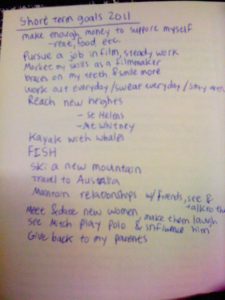 Short term goals 2011
make enough money to support myself
- rent, food etc.
Pursue a job in film, steady work
Market my skills as a filmmaker
braces on my teeth & smile more
work out everyday / swear everyday / stay
Reach new heights
- St Helens
- Mt Whitney
Kayak with whales
FISH
Ski a new mountain
Travel to Australia
Maintain relationships w/ friends, see & talk to them
Meet & date new women, make them laugh
see Mitch play Polo & influence him
Give back to my parents